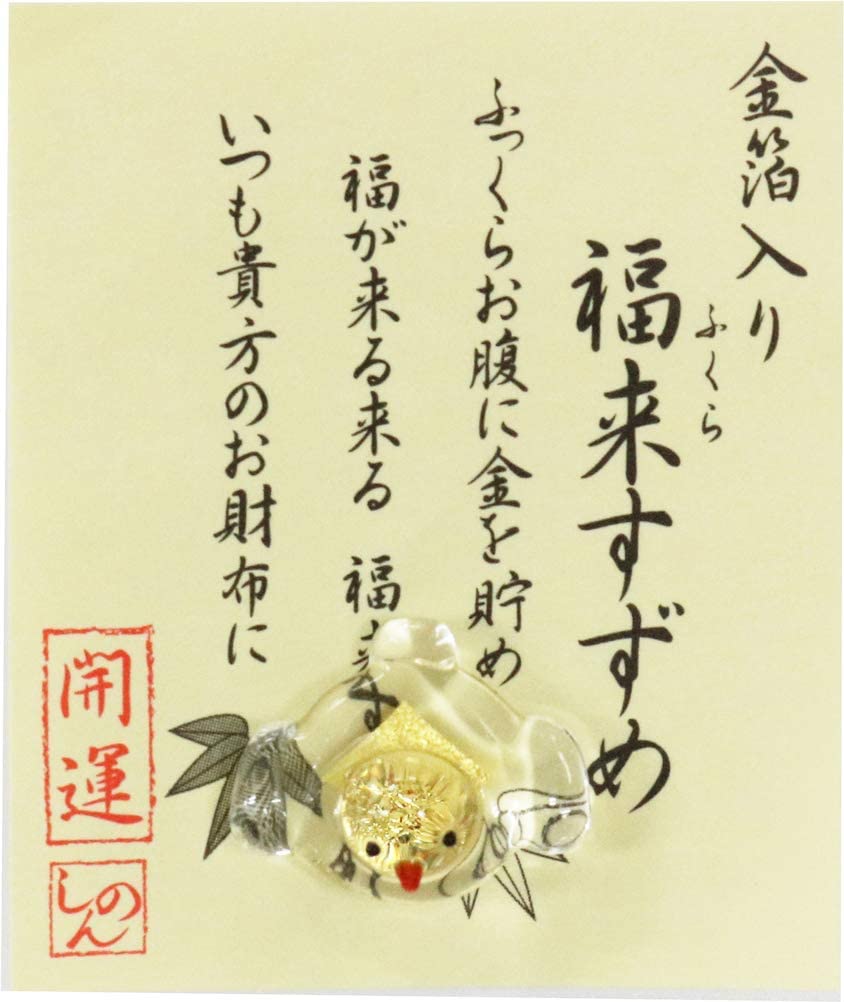 金箔入り
福来すずめ
ふくら
ふっくらお腹に金を貯め
福が来る来る 福来す
いつも貴方のお財布に
開運
しのん